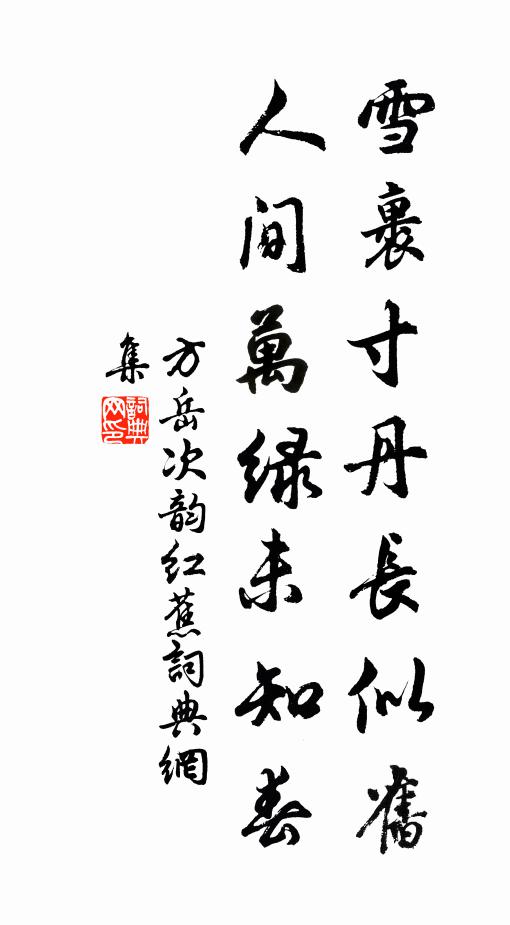 雪裏寸丹長似舊
人間萬綠未知春
方岳次韵红蕉詞典網
集
詞典网印